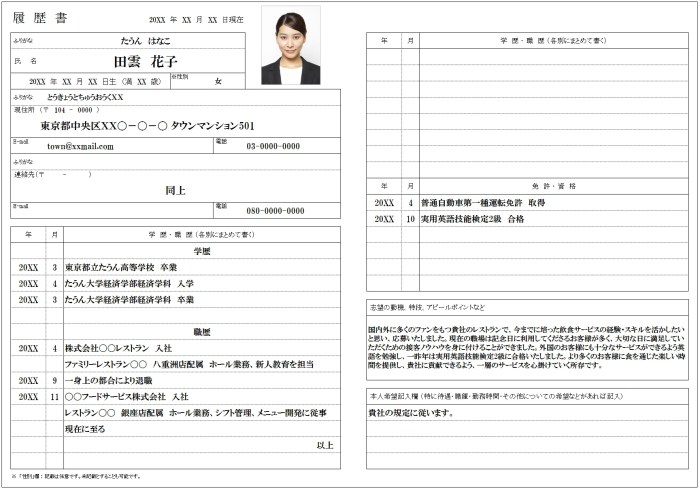 履歴書
20XX 年 XX 月 XX 日現在
ふりがな たうん はなこ
氏 名 田雲 花子
20XX 年 XX 月 XX 日生 (満 XX 歳) ※性別 女
ふりがな とうきょうとちゅうおうくXX
現住所 (〒 104 - 0000 )
東京都中央区XX〇-〇-〇 タウンマンション501
E-mail town@xxmail.com 電話 03-0000-0000
ふりがな
連絡先(〒 - )
同上
E-mail 電話 080-0000-0000
年 月 学 歴・職 歴 (各別にまとめて書く)
学歴
20XX 3 東京都立たうん高等学校 卒業
20XX 4 たうん大学経済学部経済学科 入学
20XX 3 たうん大学経済学部経済学科 卒業
職歴
20XX 4 株式会社〇〇レストラン 入社
ファミリーレストラン〇〇 八重洲店配属 ホール業務、新人教育を担当
20XX 9 一身上の都合により退職
20XX 11 〇〇フードサービス株式会社 入社
レストラン〇〇 銀座店配属 ホール業務、シフト管理、メニュー開発に従事
現在に至る
以上
※「性別」欄:記載は任意です。未記載とすることも可能です。
年 月 学 歴・職 歴 (各別にまとめて書く)
年 月 免 許・資 格
20XX 4 普通自動車第一種運転免許 取得
20XX 10 実用英語技能検定2級 合格
志望の動機、特技、アピールポイントなど
国内外に多くのファンをもつ貴社のレストランで、今までに培った飲食サービスの経験・スキルを活かしたい
と思い、応募いたしました。現在の職場は記念日に利用してくださるお客様が多く、大切な日に満足してい
ただくための接客ノウハウを身に付けることができました。外国のお客様にも十分なサービスができるよう英
語を勉強し、一昨年は実用英語技能検定2級に合格いたしました。より多くのお客様に食を通じた楽しい時
間を提供し、貴社に貢献できるよう、一層のサービスを心掛けていく所存です。
本人希望記入欄 (特に待遇・職種・勤務時間・その他についての希望などがあれば記入)
貴社の規定に従います。